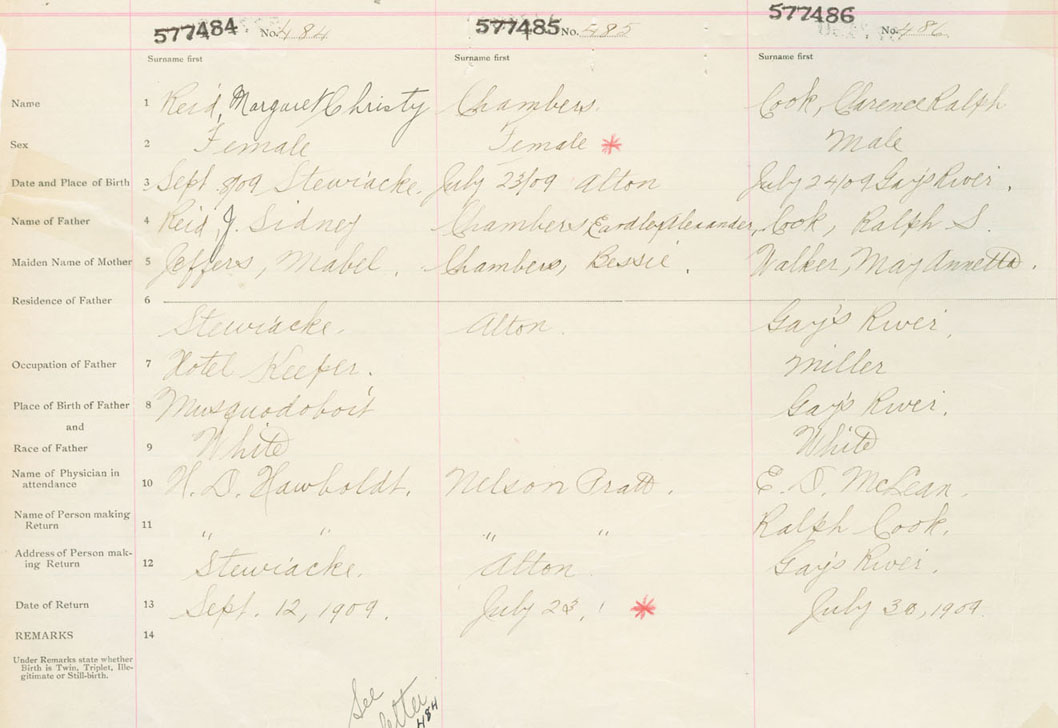 577484 No. 484 577485 No. 485 577486 No. 486
Surname first Surname first Surname first
Name 1 Reid, Margaret Christy Chambers. Cook, Clarence Ralph
Sex 2 Female Female * Male
Date and Place of Birth 3 Sept 8/09 Stewiacke. July 23/09 Alton July 24/09 Gay's River.
Name of Father 4 Reid, J. Sidney Chambers Eardley Alexander, Cook, Ralph S.
Maiden Name of Mother 5 Jeffers, Mabel. Chambers, Bessie. Walker, May Annetta.
Residence of Father 6
Stewiacke. Alton. Gay's River.
Occupation of Father 7 Hotel Keeper. Miller
Place of Birth of Father 8 Musquodoboit Gay's River.
and
Race of Father 9 White White
Name of Physician in attendance 10 H. D. Hawboldt. Nelson Pratt. E. D. McLean.
Name of Person making Return 11 " " " " Ralph Cook.
Address of Person mak-
ing Return 12 Stewiacke. Alton. Gay's River.
Date of Return 13 Sept. 12, 1909. July 23, ! * July 30, 1909.
REMARKS 14
Under Remarks state whether
Birth is Twin, Triplet, Ille-
gitimate or Still-birth.
See
letter
484